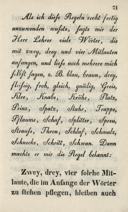 71
Als ich diese Regeln recht fertig
anzuwenden wußte, sagte mir der
Herr Lehrer viele Wörter, die
mit zwey, drey und vier Mitlauten
anfangen, und ließ mich mehrere mich
selbst sagen, z. B. blau, braun, drey,
fleißig, froh, gleich, gnädig, Greis,
Klee, Knabe, Kreide, Platz,
Prinz, Spatz, Stube, Treppe,
Pflaume, Schaf, Splitter, Sporn,
Strauß, Thron, Schlaf, Schmalz,
Schnecke, Schrift, Schwan. Dann
machte er mir die Regel bekannt:
Zwey, drey, vier solche Mit-
laute, die im Anfange der Wörter
zu stehen pflegen, bleiben auch